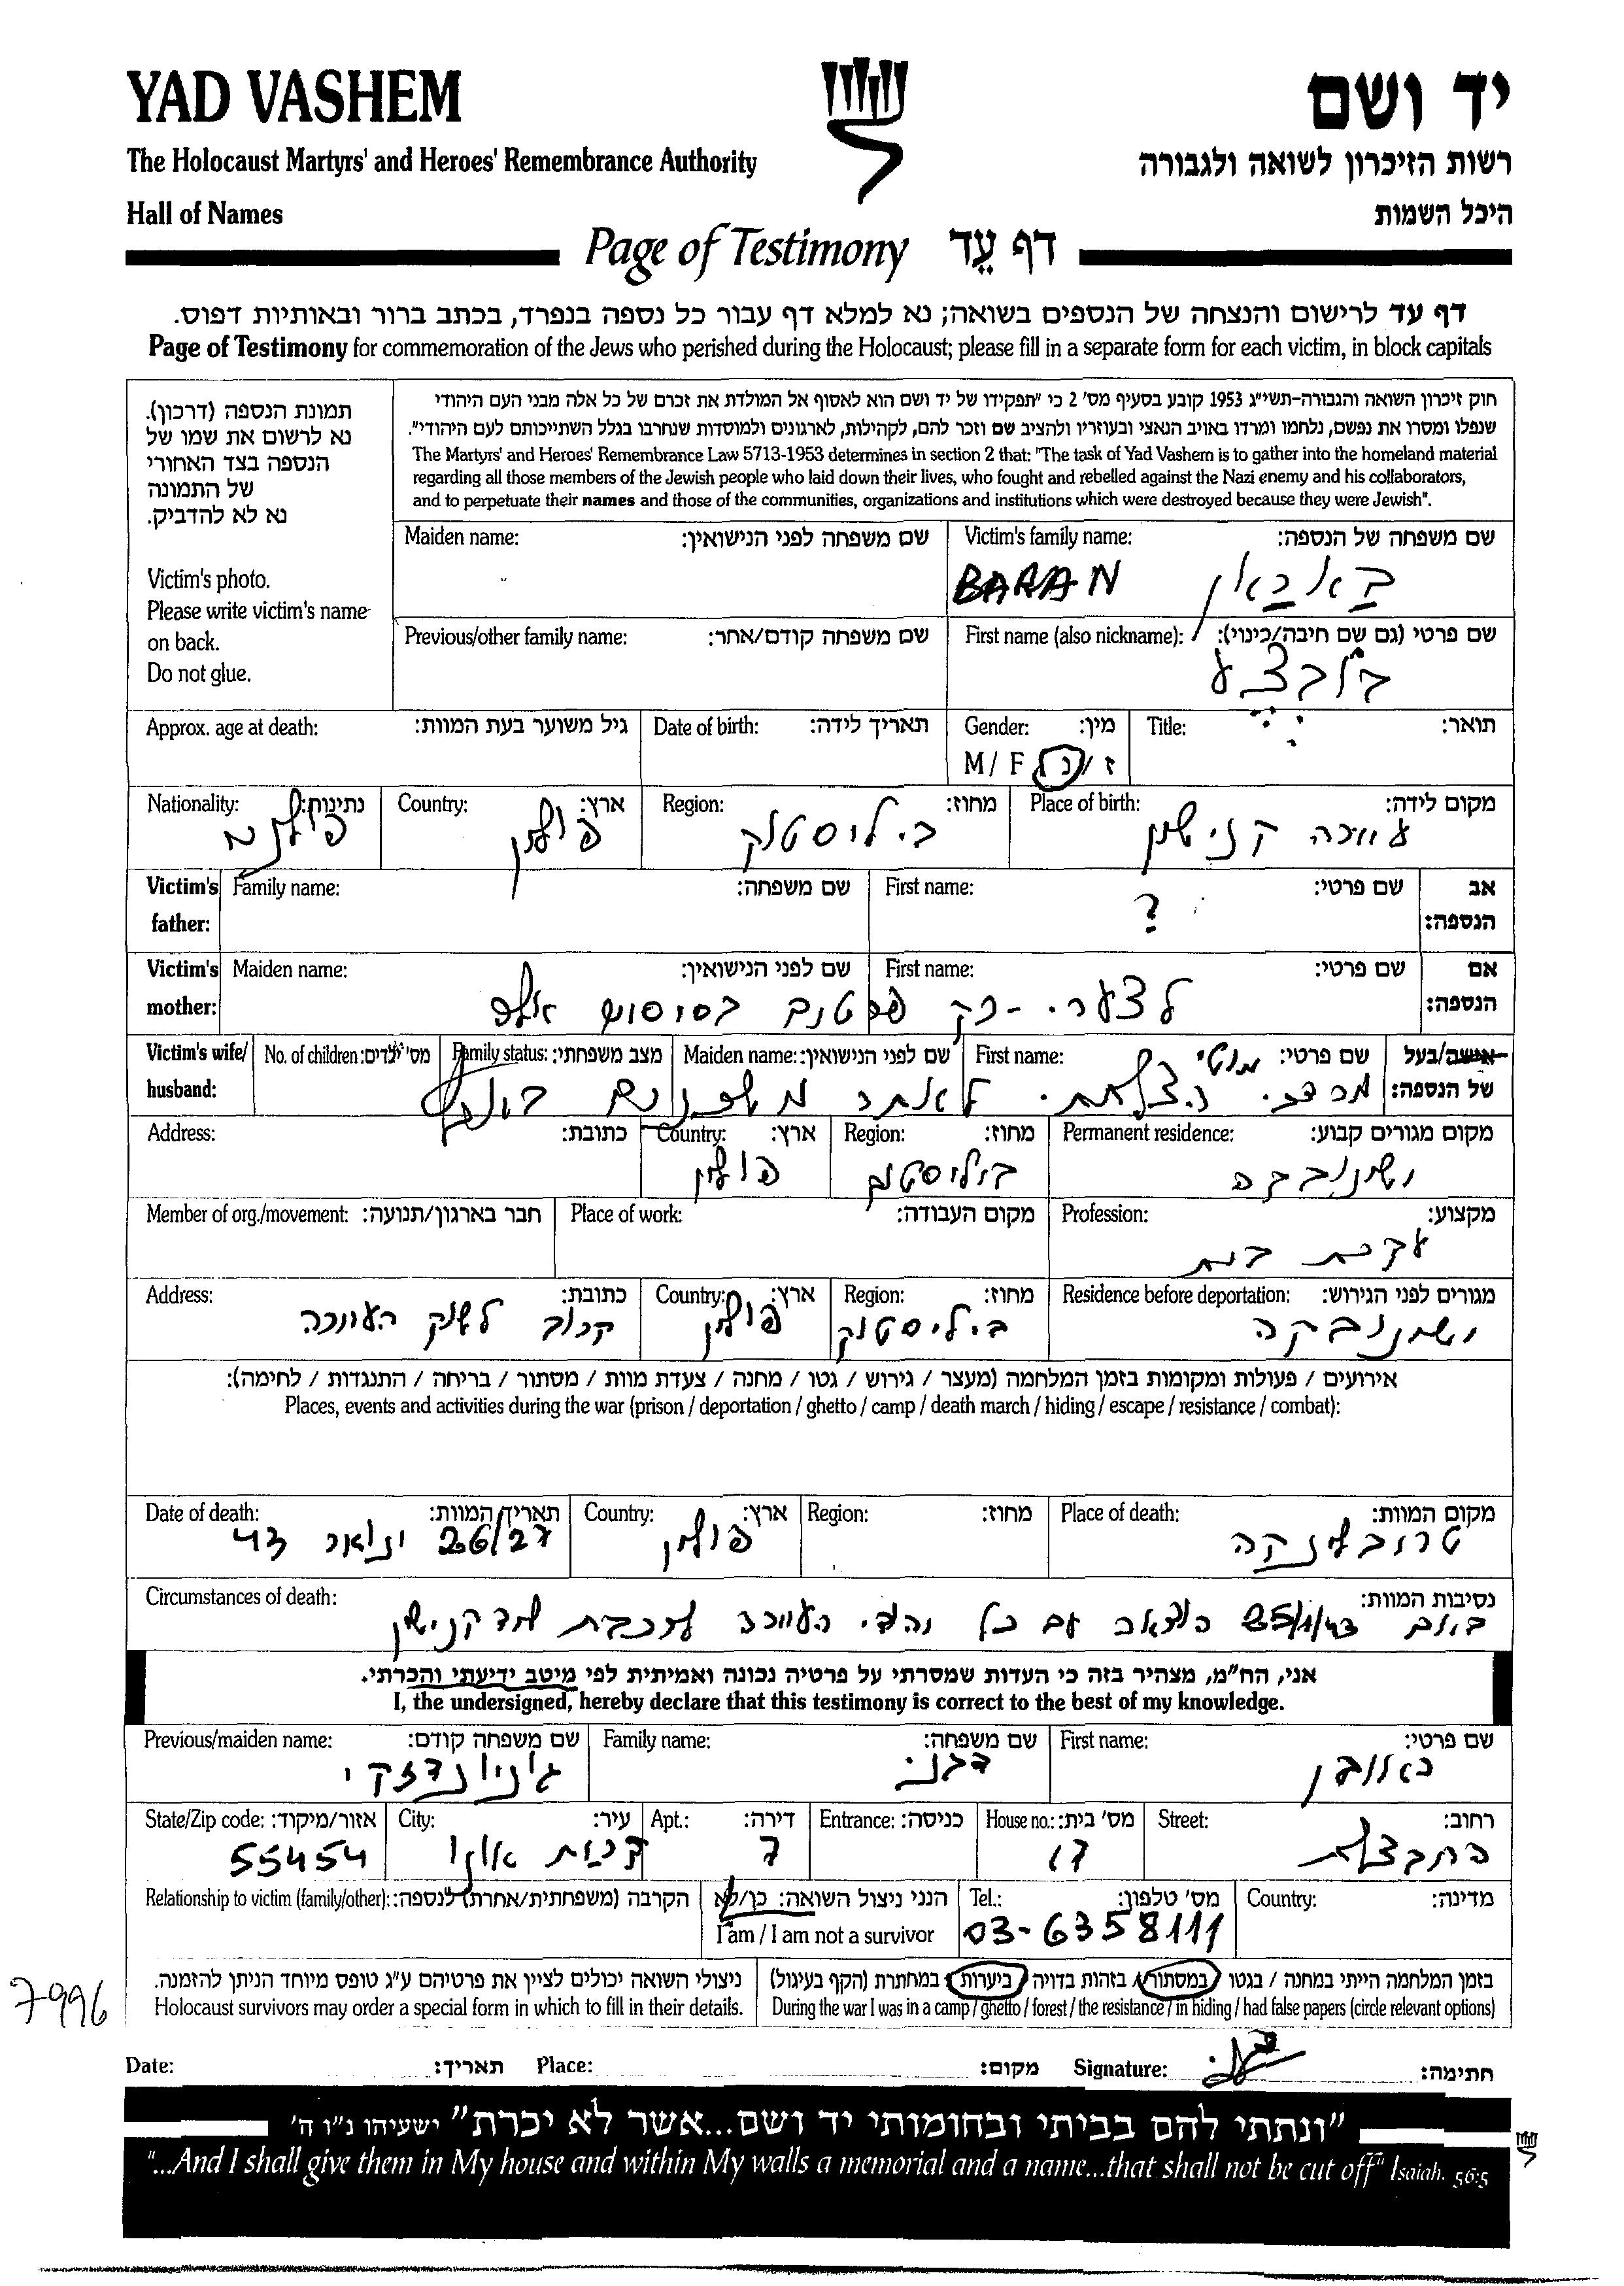 YAD VASHEM
יד ושם
The Holocaust Martyrs' and Heroes' Remembrance Authority
רשות הזיכרון לשואה ולגבורה
Hall of Names
היכל השמות
Page of Testimony דף עֵד
דף עד לרישום והנצחה של הנספים בשואה; נא למלא דף עבור כל נספה בנפרד, בכתב ברור ובאותיות דפוס.
Page of Testimony for commemoration of the Jews who perished during the Holocaust; please fill in a separate form for each victim, in block capitals
תמונת הנספה (דרכון).
נא לרשום את שמו של
הנספה בצד האחורי
של התמונה
נא לא להדביק.
Victim's photo.
Please write victim's name
on back.
Do not glue.
חוק זיכרון השואה והגבורה-תשי"ג 1953 קובע בסעיף מס' 2 כי "תפקידו של יד ושם הוא לאסוף אל המולדת את זכרם של כל אלה מבני העם היהודי
שנפלו ומסרו את נפשם, נלחמו ומרדו באויב הנאצי ובעוזריו ולהציב שם וזכר להם, לקהילות, לארגונים ולמוסדות שנחרבו בגלל השתייכותם לעם היהודי".
The Martyrs' and Heroes' Remembrance Law 5713-1953 determines in section 2 that: "The task of Yad Vashem is to gather into the homeland material
regarding all those members of the Jewish people who laid down their lives, who fought and rebelled against the Nazi enemy and his collaborators,
and to perpetuate their names and those of the communities, organizations and institutions which were destroyed because they were Jewish".
Victim's family name: שם משפחה של הנספה:
BARAN באראן
Maiden name: שם משפחה לפני הנישואין:
First name (also nickname): שם פרטי (גם שם חיבה/כינוי):
Previous/other family name: שם משפחה קודם/אחר:
Title: תואר:
Gender: מין:
M / F ז / נ
Date of birth: תאריך לידה:
Approx. age at death: גיל משוער בעת המוות:
Place of birth: מקום לידה:
קנישין
Region: מחוז:
ביליסטוק
Country: ארץ:
פולין
Nationality: נתינות:
פולנית
Victim's father: אב הנספה:
First name: שם פרטי:
?
Family name: שם משפחה:
Victim's mother: אם הנספה:
First name: שם פרטי:
Maiden name: שם לפני הנישואין:
Victim's wife/ husband: אישה/בעל של הנספה:
First name: שם פרטי:
Maiden name: שם לפני הנישואין:
Family status: מצב משפחתי:
No. of children: מס' ילדים:
Permanent residence: מקום מגורים קבוע:
Region: מחוז:
ביליסטוק
Country: ארץ:
פולין
Address: כתובת:
Profession: מקצוע:
עקרת בית
Place of work: מקום העבודה:
Member of org./movement: חבר בארגון/תנועה:
Residence before deportation: מגורים לפני הגירוש:
ישינובקה
Region: מחוז:
ביליסטוק
Country: ארץ:
פולין
Address: כתובת:
קרוב לשוק העיירה
אירועים / פעולות ומקומות בזמן המלחמה (מעצר / גירוש / גטו / מחנה / צעדת מוות / מסתור / בריחה / התנגדות / לחימה):
Places, events and activities during the war (prison / deportation / ghetto / camp / death march / hiding / escape / resistance / combat):
Place of death: מקום המוות:
טרובלינקה
Region: מחוז:
Country: ארץ:
פולין
Date of death: תאריך המוות:
26/27 ינואר 43
Circumstances of death: נסיבות המוות:
ביום 25/1/43 הוצאה עם כל יהודי העיירה לרכבת
אני, הח"מ, מצהיר בזה כי העדות שמסרתי על פרטיה נכונה ואמיתית לפי מיטב ידיעתי והכרתי.
I, the undersigned, hereby declare that this testimony is correct to the best of my knowledge.
First name: שם פרטי:
ראובן
Family name: שם משפחה:
דגני
Previous/maiden name: שם משפחה קודם:
גוניונדזקי
Street: רחוב:
החבצלת
House no.: מס' בית:
17
Entrance: כניסה:
Apt.: דירה:
7
City: עיר:
קרית אונו
State/Zip code: אזור/מיקוד:
55454
Country: מדינה:
Tel.: מס' טלפון:
03-6358111
הנני ניצול השואה: כן/לא
I am / I am not a survivor
Relationship to victim (family/other): הקרבה (משפחתית/אחרת) לנספה:
בזמן המלחמה הייתי במחנה / בגטו / במסתור / בזהות בדויה / ביערות / במחתרת (הקף בעיגול)
During the war I was in a camp / ghetto / forest / the resistance / in hiding / had false papers (circle relevant options)
ניצולי השואה יכולים לציין את פרטיהם ע"ג טופס מיוחד הניתן להזמנה.
Holocaust survivors may order a special form in which to fill in their details.
7996
Date: תאריך: Place: מקום: Signature: חתימה:
"ונתתי להם בביתי ובחומותי יד ושם...אשר לא יכרת" ישעיהו נ"ו ה'
"...And I shall give them in My house and within My walls a memorial and a name...that shall not be cut off" Isaiah. 56:5